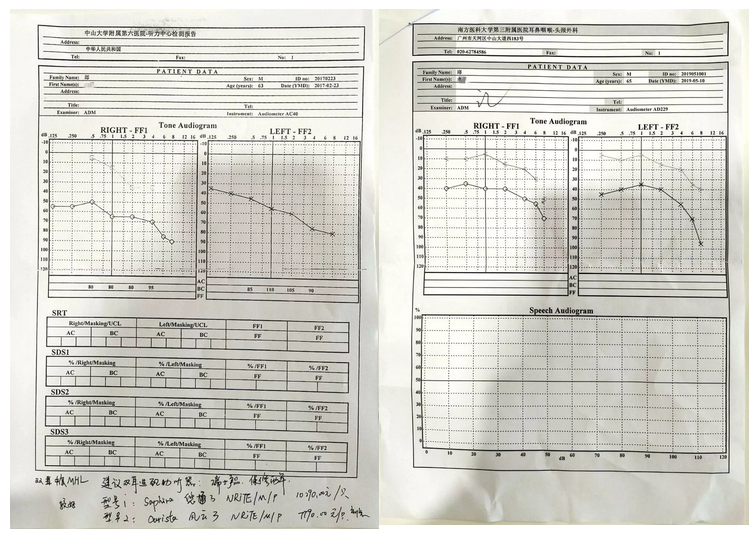 中山大学附属第六医院-听力中心检测报告
Address:
中华人民共和国
Tel: Fax: No: 1
PATIENT DATA
Family Name: 邱 Sex: M ID no: 20170223
First Name(s): Age (years): 63 Date (YMD): 2017-02-23
Address:
Title: Tel:
Examiner: ADM Instrument: Audiometer AC40
Tone Audiogram
RIGHT - FF1 LEFT - FF2
dB .125 .250 .5 1 2 3 4 6 8 12 16 .125 .250 .5 1 2 3 4 6 8 12 16
-10
0
10
20
30
40
50
60
70
80
90
100
110
120
AC
BC
FF
80 80 80 95 85 110 105 90
SRT
Right/Masking/UCL Left/Masking/UCL FF1 FF2
AC BC AC BC FF FF
SDS1
% /Right/Masking % /Left/Masking % /FF1 % /FF2
AC BC AC BC FF FF
SDS2
% /Right/Masking % /Left/Masking % /FF1 % /FF2
AC BC AC BC FF FF
SDS3
% /Right/Masking % /Left/Masking % /FF1 % /FF2
AC BC AC BC FF FF
建议双耳选配助听器:
型号1: Saphira 3 NRiTE/M/P
型号2: 3 NRiTE/M/P
南方医科大学第三附属医院耳鼻咽喉-头颈外科
Address: 广州市天河区中山大道西183号
Tel: 020-62784586 Fax: No: 1
PATIENT DATA
Family Name: Sex: M ID no: 2019051001
First Name(s): Age (years): 65 Date (YMD): 2019-05-10
Address:
Title: Tel:
Examiner: ADM Instrument: Audiometer AD229
Tone Audiogram
RIGHT - FF1 LEFT - FF2
dB .125 .250 .5 1 2 3 4 6 8 12 16 dB .125 .250 .5 1 2 3 4 6 8 12 16
-10
0
10
20
30
40
50
60
70
80
90
100
110
120
AC
BC
FF
Speech Audiogram
%
100
90
80
70
60
50
40
30
20
10
0
dB -10 0 10 20 30 40 50 60 70 80 90 100 110 120